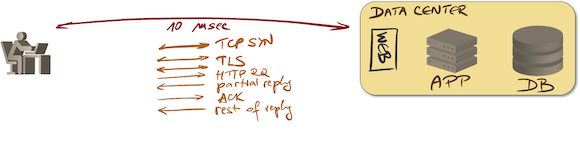 10 msec
TCP SYN
TLS
HTTP RQ
partial reply
ACK
rest of reply
DATA CENTER
WEB
APP
DB